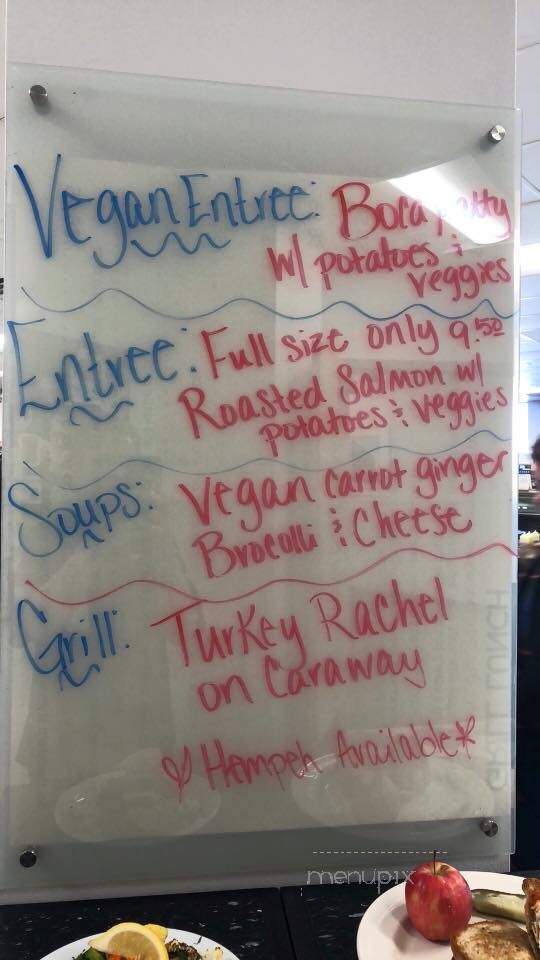 Vegan Entree: Boca Patty
W/ potatoes &
veggies
Entree: Full size only 9.50
Roasted Salmon w/
potatoes & veggies
Soups: Vegan carrot ginger
Brocolli & Cheese
Grill: Turkey Rachel
on Caraway
Hempeh Available*
GRILL LUNCH
menupix